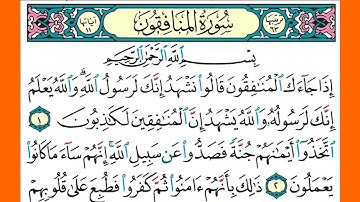 ترتيبها ٦٣ سُورَةُ المُنَافِقُونَ آياتها ١١
بِسْمِ ٱللَّهِ ٱلرَّحْمَٰنِ ٱلرَّحِيمِ
إِذَا جَآءَكَ ٱلْمُنَٰفِقُونَ قَالُوا۟ نَشْهَدُ إِنَّكَ لَرَسُولُ ٱللَّهِ ۗ وَٱللَّهُ يَعْلَمُ
إِنَّكَ لَرَسُولُهُۥ وَٱللَّهُ يَشْهَدُ إِنَّ ٱلْمُنَٰفِقِينَ لَكَٰذِبُونَ ١
ٱتَّخَذُوٓا۟ أَيْمَٰنَهُمْ جُنَّةً فَصَدُّوا۟ عَن سَبِيلِ ٱللَّهِ ۚ إِنَّهُمْ سَآءَ مَا كَانُوا۟
يَعْمَلُونَ ٢ ذَٰلِكَ بِأَنَّهُمْ ءَامَنُوا۟ ثُمَّ كَفَرُوا۟ فَطُبِعَ عَلَىٰ قُلُوبِهِمْ